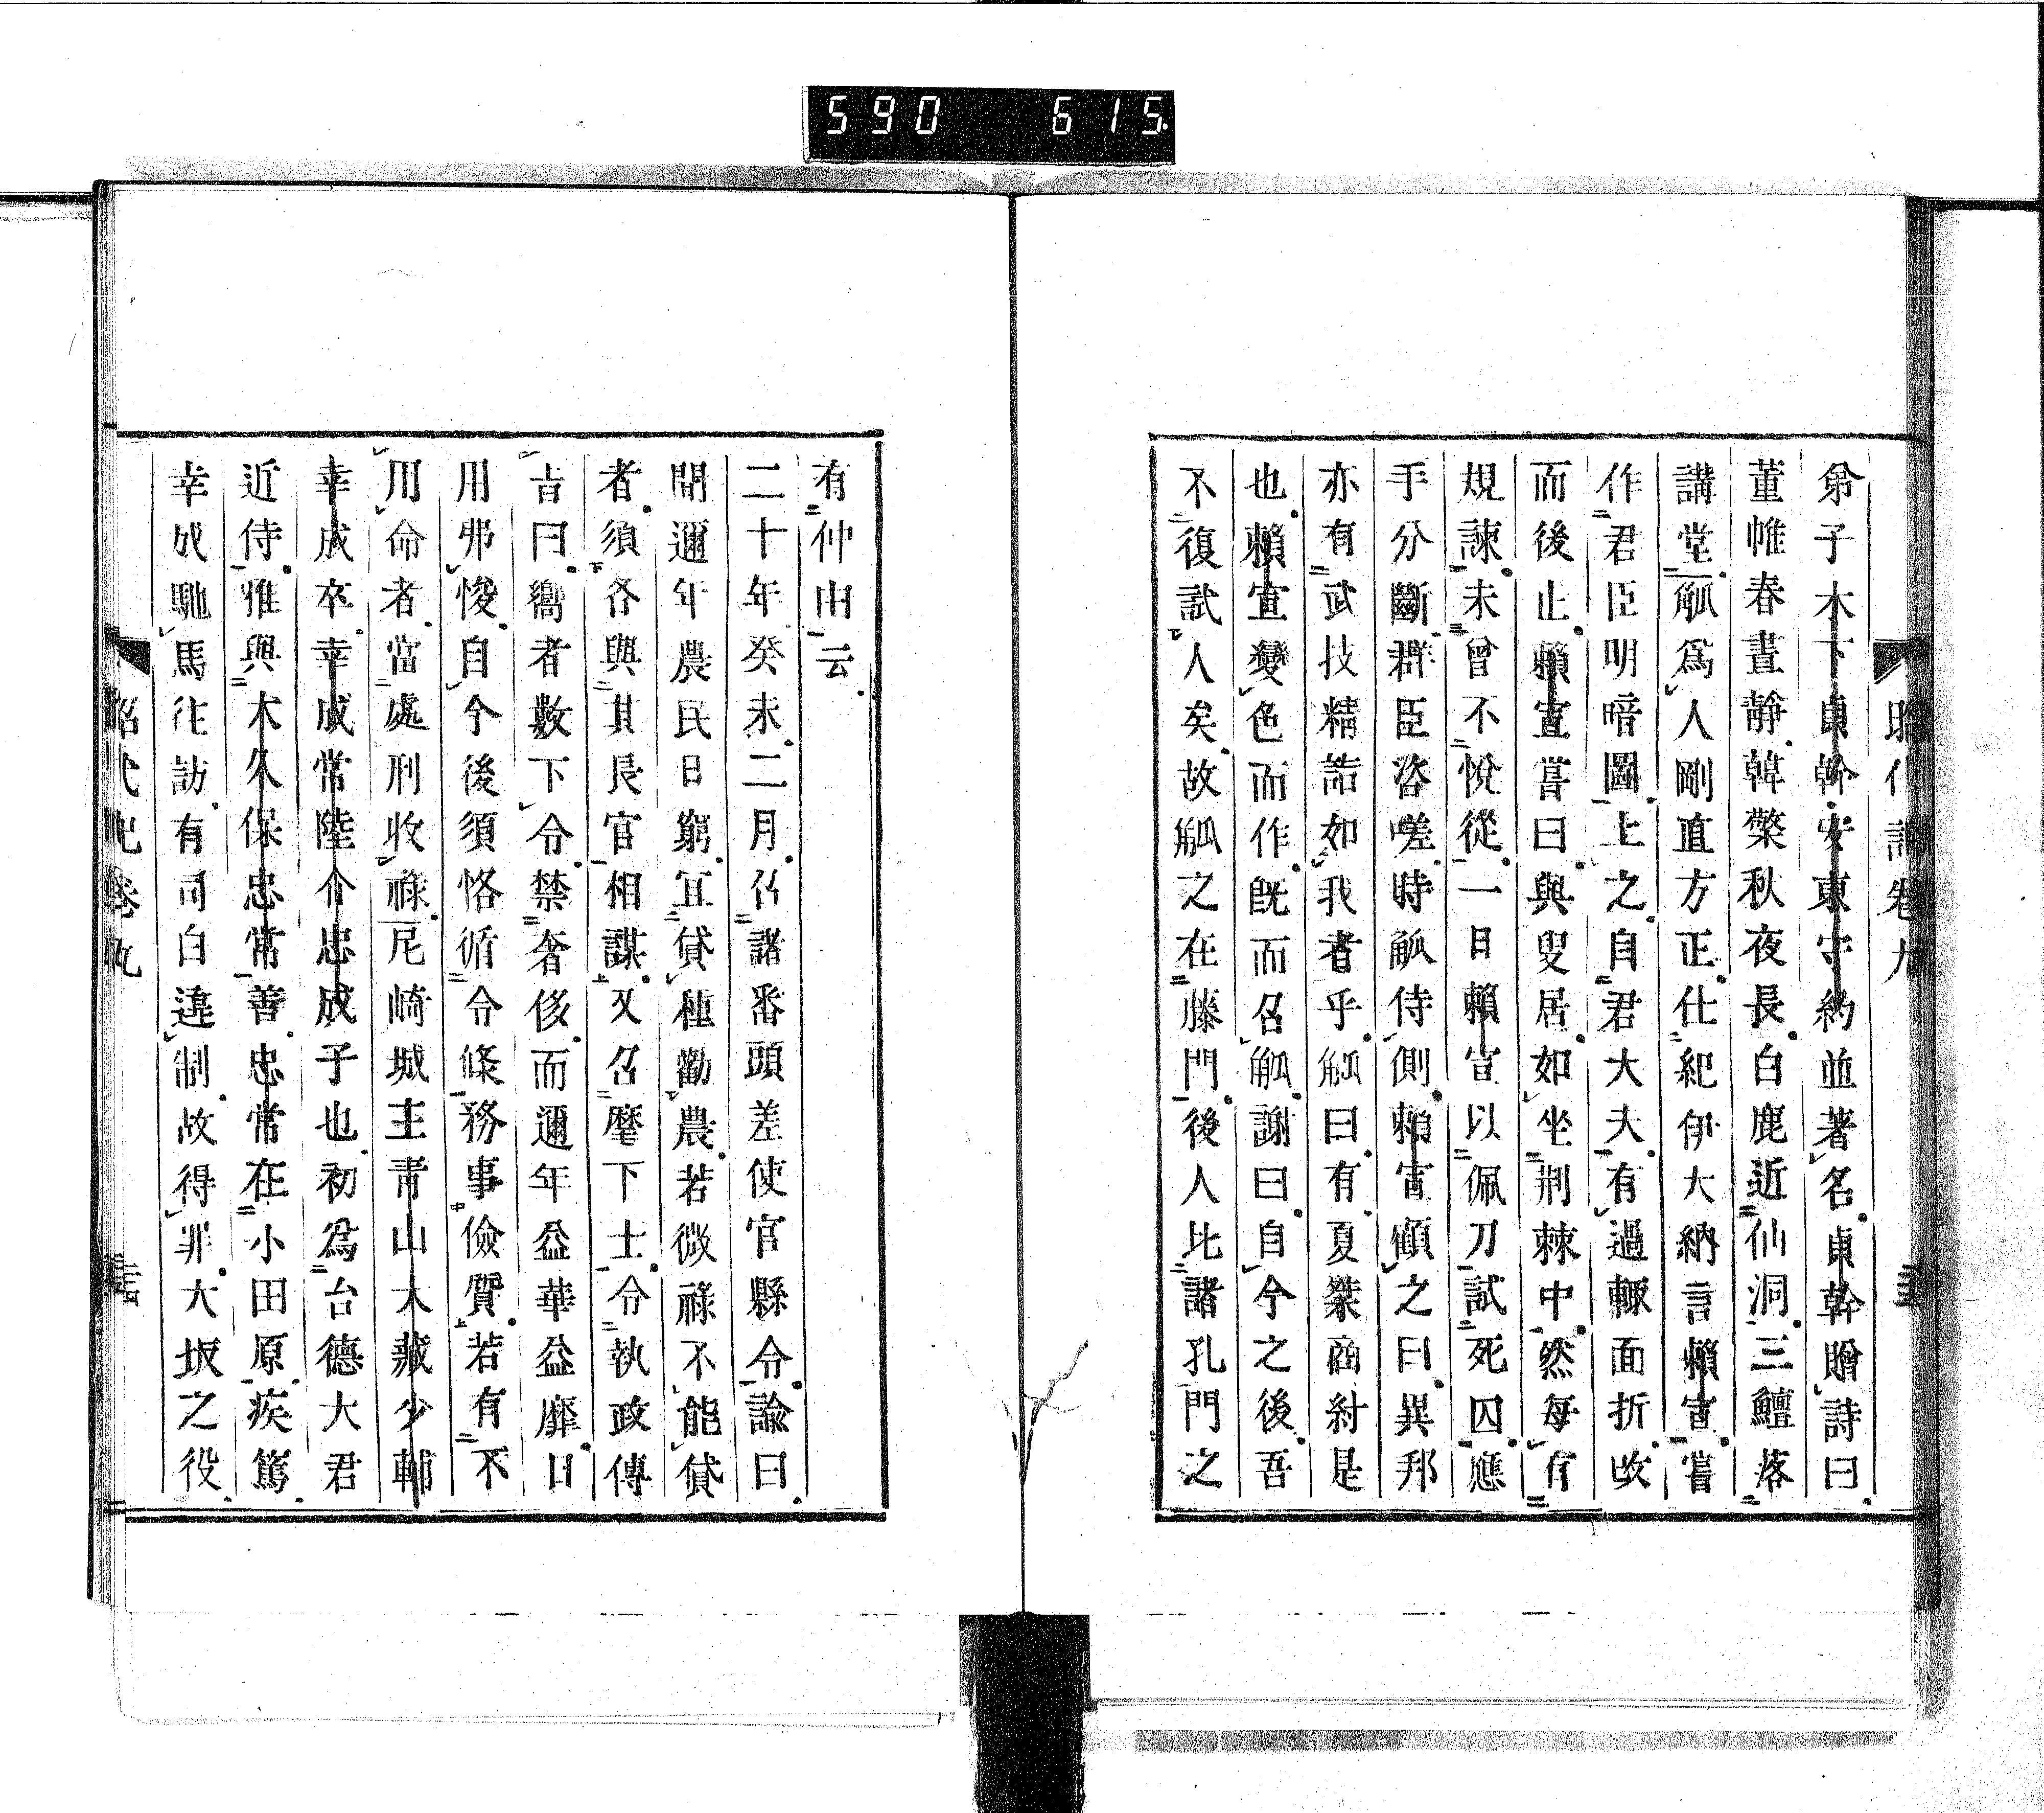 590 615
昭代記卷九
弟子木下貞幹安東守約並著名貞幹贈詩曰
董帷春晝靜韓檠秋夜長白鹿近仙洞三鱣落
講堂觚爲人剛直方正仕紀伊大納言賴宣嘗
作君臣明暗圖上之自君大夫有過輙面折收
而後止賴宣嘗曰與叟居如坐荆棘中然每有
規諫未曾不悅從一日賴宣以佩刀試死囚應
手分斷群臣咨嗟時觚侍側賴宣顧之曰異邦
亦有武技精誥如我者乎觚曰有夏桀商紂是
也賴宣變色而作旣而召觚謝曰自今之後吾
不復試人矣故觚之在藤門後人比諸孔門之
有仲由云
二十年癸未二月召諸番頭差使官縣令諭曰
聞邇年農民日窮宜貸種勸農若微祿不能貸
者須各與其長官相謀又召麾下士令執政傳
吉曰嚮者數下令禁奢侈而邇年益華益靡日
用弗悛自今後須恪循令條務事儉質若有不
用命者當處刑收祿尼崎城主靑山大藏少輔
幸成卒幸成常陸介忠成子也初爲台德大君
近侍雅與大久保忠常善忠常在小田原疾篤
幸成馳馬往訪有司白違制故得罪大坂之役
昭代記卷九